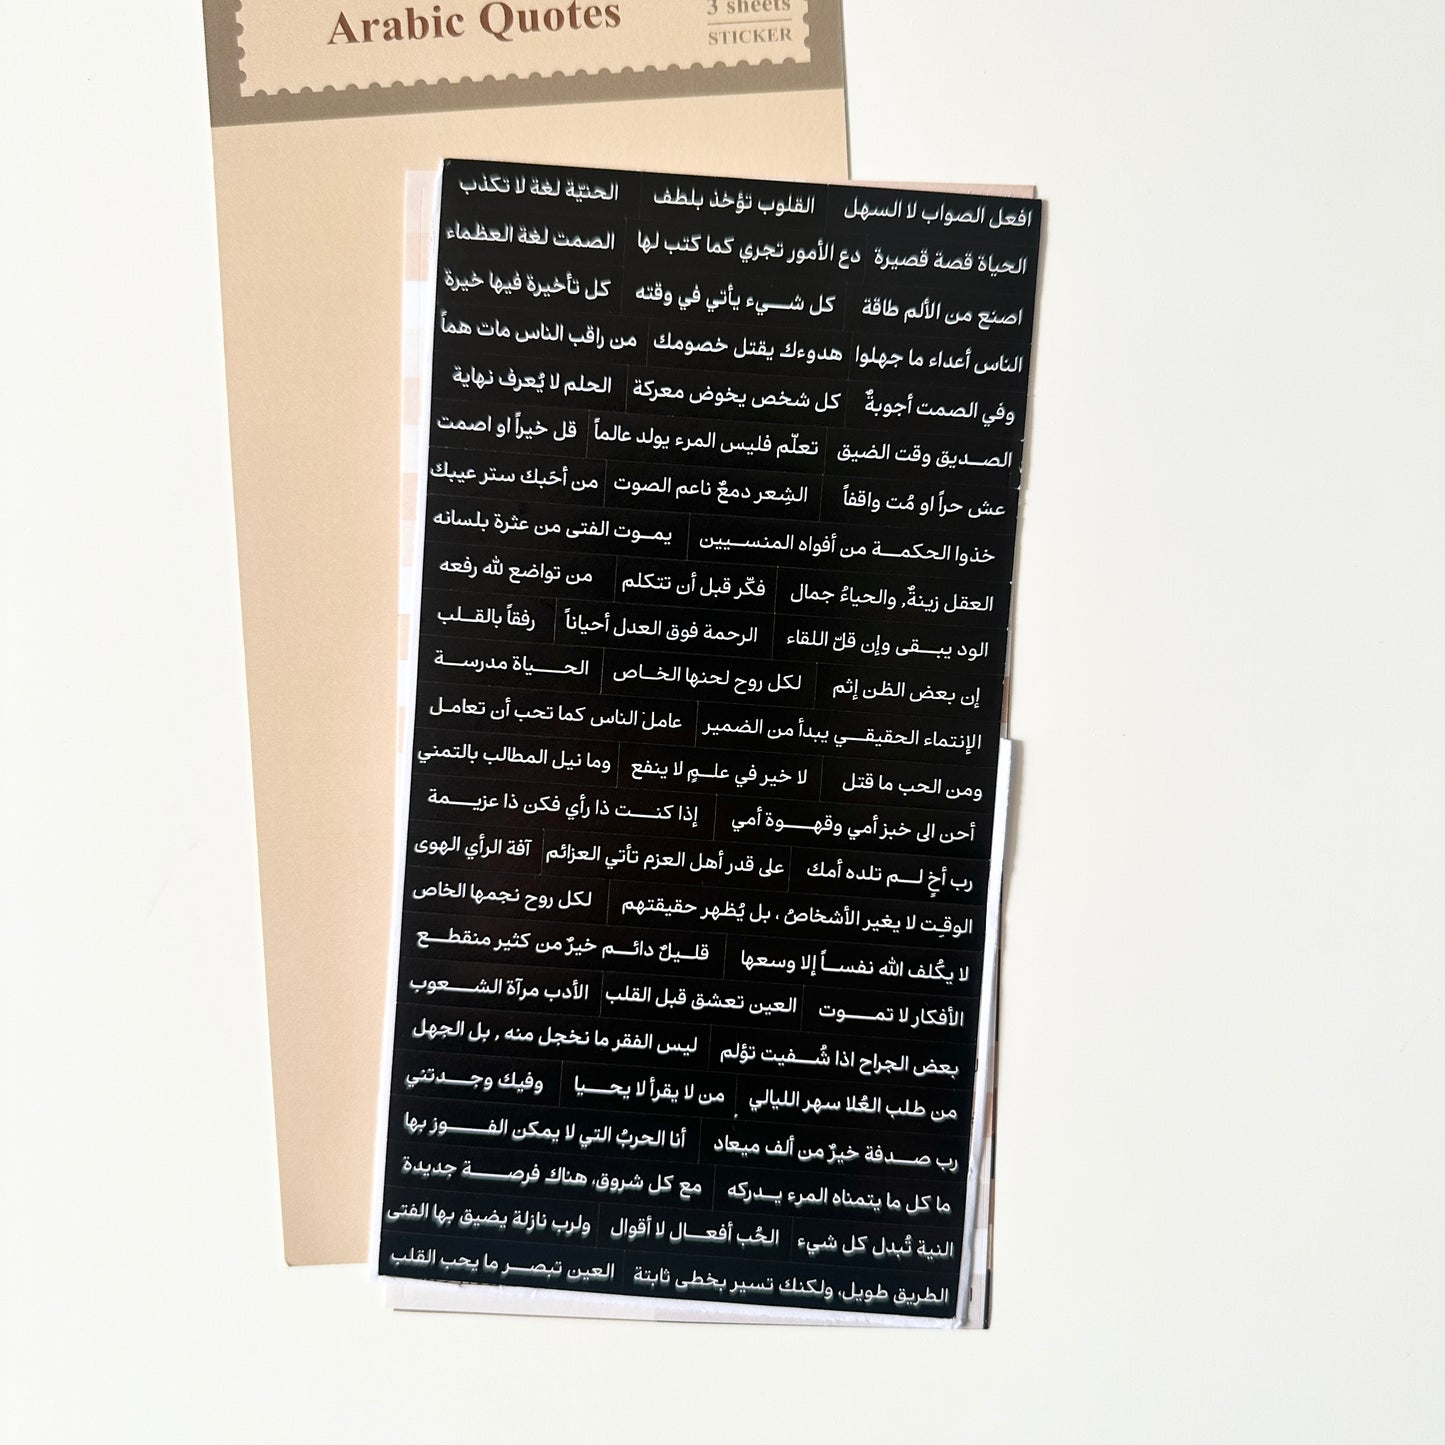 Arabic Quotes
3 sheets
STICKER
افعل الصواب لا السهل القلوب تؤخذ بلطف الحنيّة لغة لا تكذب
الحياة قصة قصيرة دع الأمور تجري كما كتب لها الصمت لغة العظماء
اصنع من الألم طاقة كل شـــيء يأتي في وقته كل تأخيرة فيها خيرة
الناس أعداء ما جهلوا هدوءك يقتل خصومك من راقب الناس مات هماً
وفي الصمت أجوبةٌ كل شخص يخوض معركة الحلم لا يُعرف نهاية
الصــديق وقت الضيق تعلّم فليس المرء يولد عالماً قل خيراً او اصمت
عش حراً او مُت واقفاً الشِعر دمعٌ ناعم الصوت من أحَبك ستر عيبك
خذوا الحكمـــة من أفواه المنســيين يمــوت الفتى من عثرة بلسانه
العقل زينةٌ, والحياءُ جمال فكّر قبل أن تتكلم من تواضع لله رفعه
الود يبـــقى وإن قلّ اللقاء الرحمة فوق العدل أحياناً رفقاً بالقــلب
إن بعض الظن إثم لكل روح لحنها الخــاص الحـــــياة مدرســـة
الإنتماء الحقيقـــي يبدأ من الضمير عامل الناس كما تحب أن تعامـل
ومن الحب ما قتل لا خير في علــمٍ لا ينفع وما نيل المطالب بالتمني
أحن الى خبز أمي وقهـــــوة أمي إذا كنـــــت ذا رأي فكن ذا عزيـــمة
رب أخٍ لـــم تلده أمك على قدر أهل العزم تأتي العزائم آفة الرأي الهوى
الوقـِت لا يغير الأشخاصُ ، بل يُظهر حقيقتهم لكل روح نجمها الخاص
لا يكُلف الله نفســاً إلا وسعها قلــيلٌ دائـــم خيرٌ من كثير منقطــع
الأفكار لا تمـــــوت العين تعشق قبل القلب الأدب مرآة الشـــــعوب
بعض الجراح اذا شُـــفيت تؤلم ليس الفقر ما نخجل منه , بل الجهل
من طلب العُلا سهر الليالي من لا يقرأ لا يحــــيا وفيك وجـــدتني
رب صـــدفة خيرٌ من ألف ميعاد أنا الحربُ التي لا يمكن الفــــــوز بها
ما كل ما يتمناه المرء يــدركه مع كل شروق، هناك فرصـــــة جديدة
النية تُبدل كل شيء الحُب أفعـــال لا أقوال ولرب نازلة يضيق بها الفتى
الطريق طويل، ولكنك تسير بخطى ثابتة العين تبصـــر ما يحب القلب